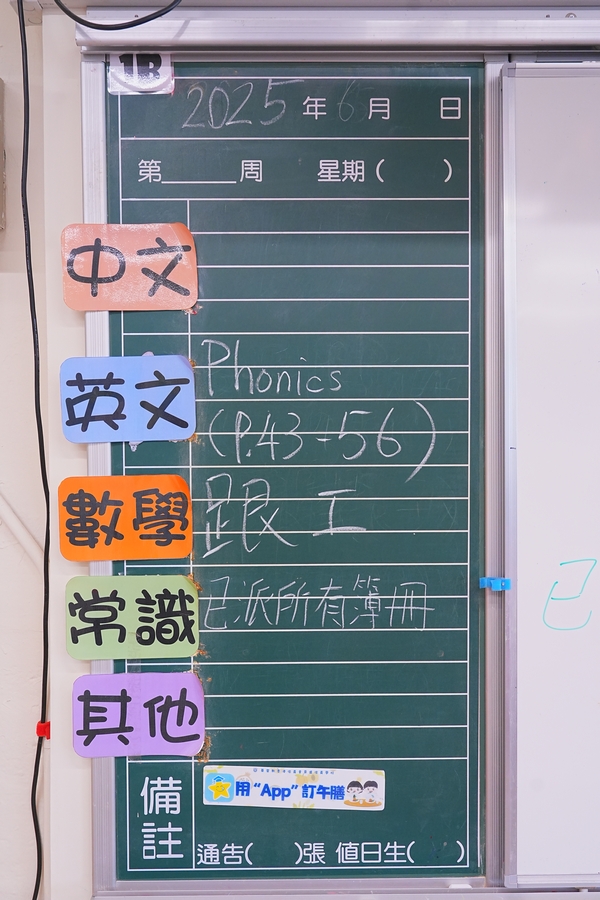 1R
2025年6月 日
第______周 星期( )
中文
英文 Phonics
(P.43-56)
數學 跟工
常識 已派所有簿冊
其他
備註
用“App”訂午膳
通告( )張 值日生( )
已